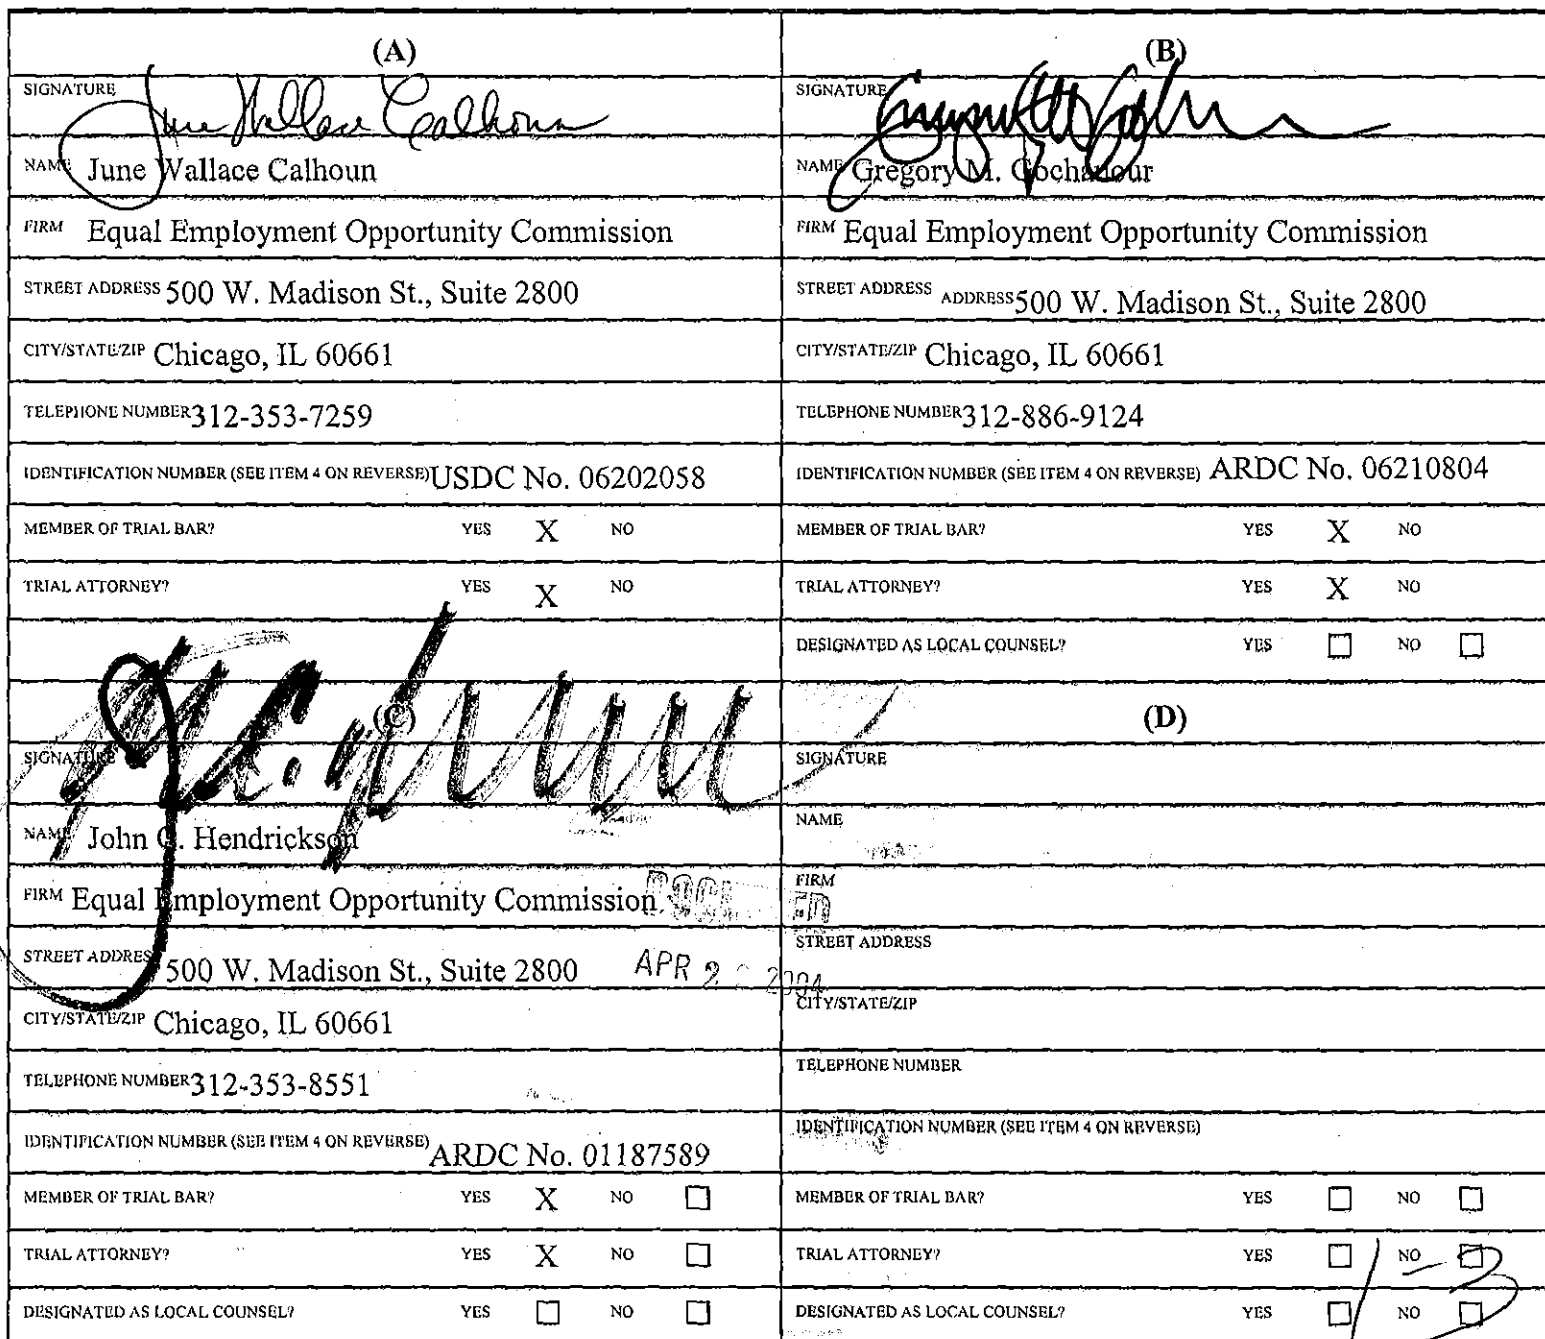 (A)
SIGNATURE June Wallace Calhoun
NAME June Wallace Calhoun
FIRM Equal Employment Opportunity Commission
STREET ADDRESS 500 W. Madison St., Suite 2800
CITY/STATE/ZIP Chicago, IL 60661
TELEPHONE NUMBER 312-353-7259
IDENTIFICATION NUMBER (SEE ITEM 4 ON REVERSE) USDC No. 06202058
MEMBER OF TRIAL BAR? YES X NO
TRIAL ATTORNEY? YES X NO
(B)
SIGNATURE
NAME Gregory M. Gochanour
FIRM Equal Employment Opportunity Commission
STREET ADDRESS ADDRESS 500 W. Madison St., Suite 2800
CITY/STATE/ZIP Chicago, IL 60661
TELEPHONE NUMBER 312-886-9124
IDENTIFICATION NUMBER (SEE ITEM 4 ON REVERSE) ARDC No. 06210804
MEMBER OF TRIAL BAR? YES X NO
TRIAL ATTORNEY? YES X NO
DESIGNATED AS LOCAL COUNSEL? YES ☐ NO ☐
(C)
SIGNATURE
NAME John C. Hendrickson
FIRM Equal Employment Opportunity Commission
STREET ADDRESS 500 W. Madison St., Suite 2800
APR 2 2004
CITY/STATE/ZIP Chicago, IL 60661
TELEPHONE NUMBER 312-353-8551
IDENTIFICATION NUMBER (SEE ITEM 4 ON REVERSE) ARDC No. 01187589
MEMBER OF TRIAL BAR? YES X NO ☐
TRIAL ATTORNEY? YES X NO ☐
DESIGNATED AS LOCAL COUNSEL? YES ☐ NO ☐
(D)
SIGNATURE
NAME
FIRM
STREET ADDRESS
CITY/STATE/ZIP
TELEPHONE NUMBER
IDENTIFICATION NUMBER (SEE ITEM 4 ON REVERSE)
MEMBER OF TRIAL BAR? YES ☐ NO ☐
TRIAL ATTORNEY? YES ☐ NO ☐
DESIGNATED AS LOCAL COUNSEL? YES ☐ NO ☐
1-3